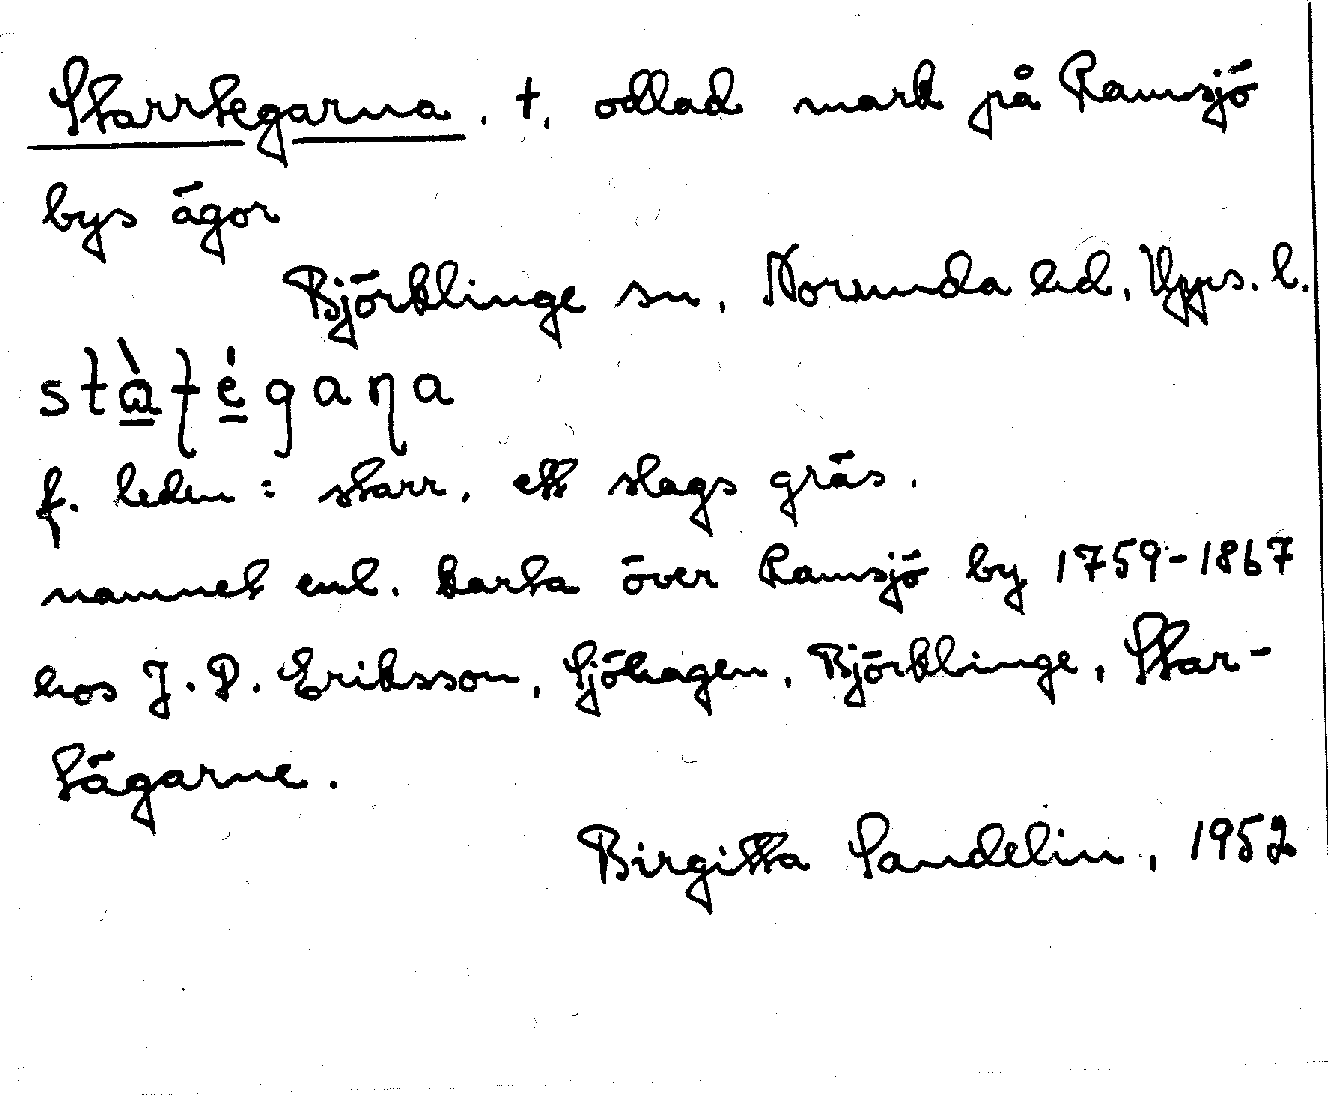 Starrtegarna, †, odlad mark på Ramsjö
bys ägor
Björklinge sn, Norunda hd, Upps. l.
f. leden = starr, ett slags gräs.
namnet enl. karta över Ramsjö by 1759-1867
hos J. P. Eriksson, Sjöhagen, Björklinge, Star-
tägarne.
Birgitta Sandelin, 1952